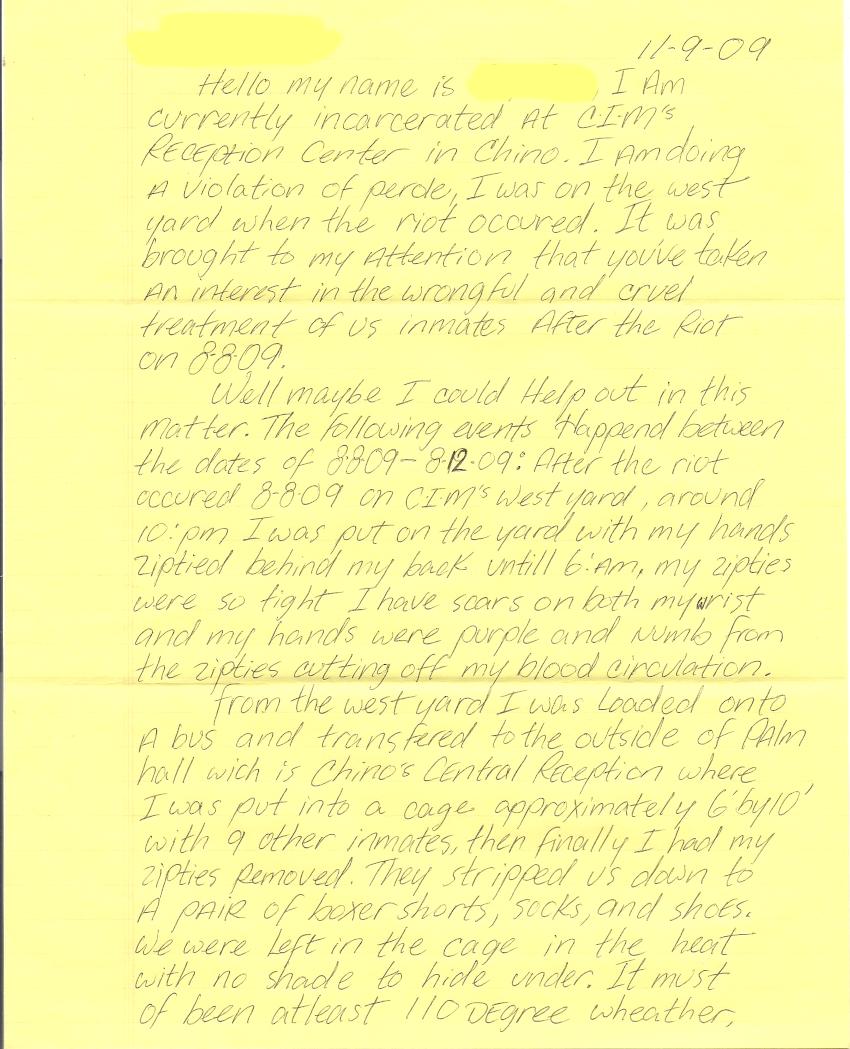 11-9-09
Hello my name is , I Am
currently incarcerated At C.I.M's
RECEPtion Center in Chino. I Am doing
A violation of perole, I was on the west
yard when the riot occured. It was
brought to my Attention that you've taken
An interest in the wrongful and cruel
treatment of us inmates After the Riot
on 8-8-09.
Well maybe I could Help out in this
matter. The following events Happend between
the dates of 8-8-09 - 8-12-09: After the riot
occured 8-8-09 on C.I.M's West yard, around
10:pm I was put on the yard with my hands
ziptied behind my back untill 6:Am, my zipties
were so tight I have scars on both my wrist
and my hands were purple and numb from
the zipties cutting off my blood circulation.
From the west yard I was Loaded onto
A bus and transfered to the outside of PAlm
hall wich is Chino's CEntral Reception where
I was put into a cage approximately 6' by 10'
with 9 other inmates, then finally I had my
zipties Removed. They stripped us down to
A PAIR of boxer shorts, socks, and shoEs.
We were Left in the cage in the heat
with no shade to hide under. It must
of been atleast 110 DEgree wheather,